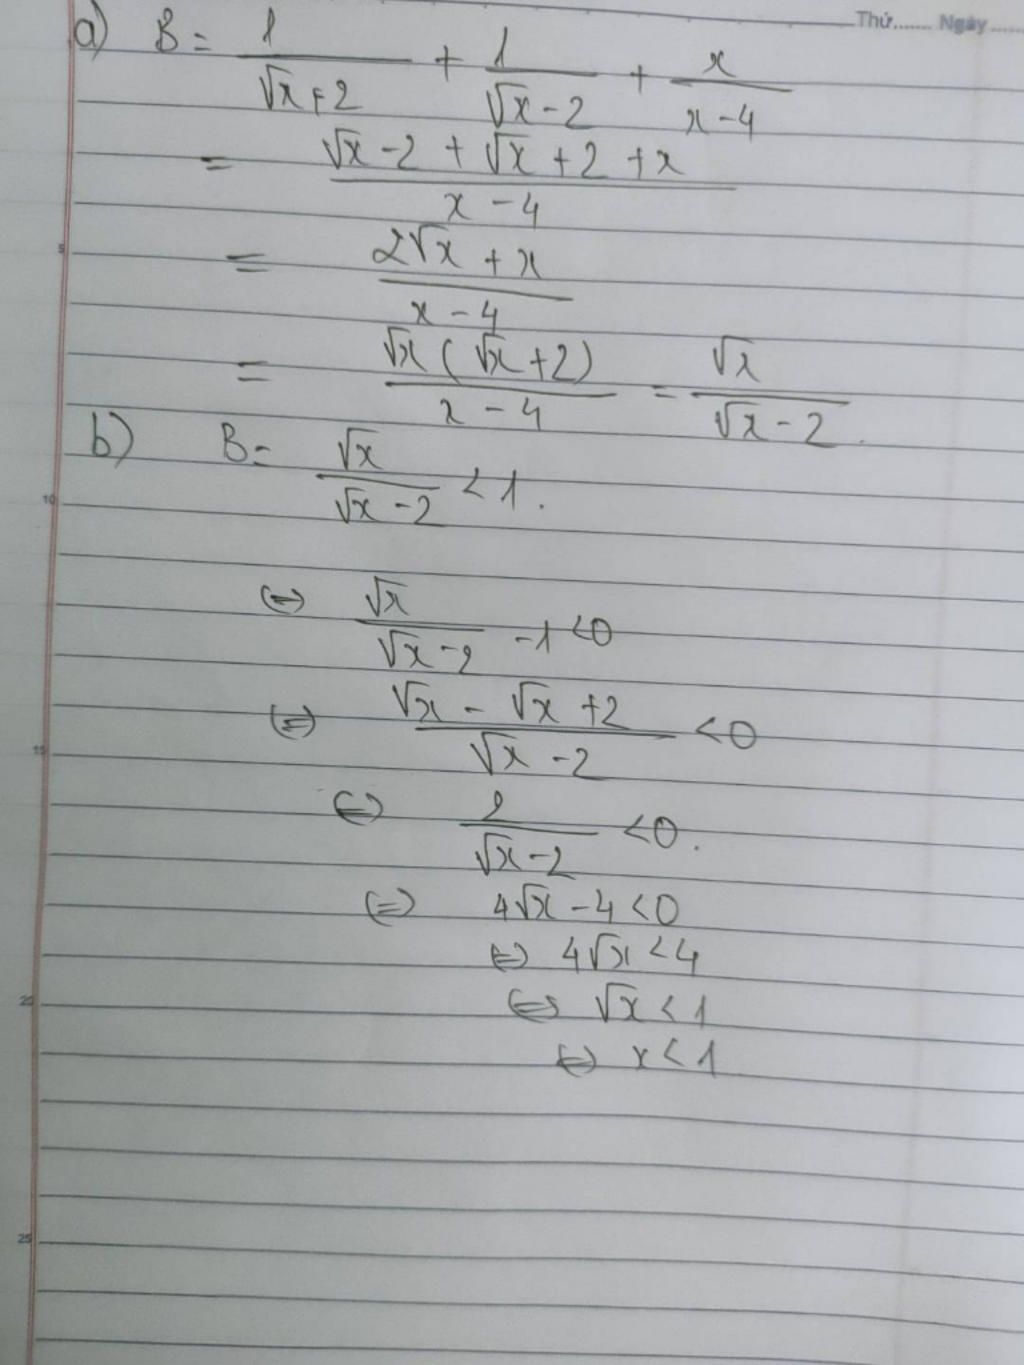 Thứ....... Ngày......
a) B = 1/(√x+2) + 1/(√x-2) + x/(x-4)
= (√x-2+√x+2+x)/(x-4)
= (2√x+x)/(x-4)
= √x(√x+2)/(x-4) = √x/(√x-2).
b) B= √x/(√x-2) < 1.
⇔ √x/(√x-2) -1 <0
⇔ (√x-√x+2)/(√x-2) <0
⇔ 2/(√x-2) <0.
⇔ 4√x-4<0
⇔ 4√x<4
⇔ √x<1
⇔ x<1
5
10
15
20
25